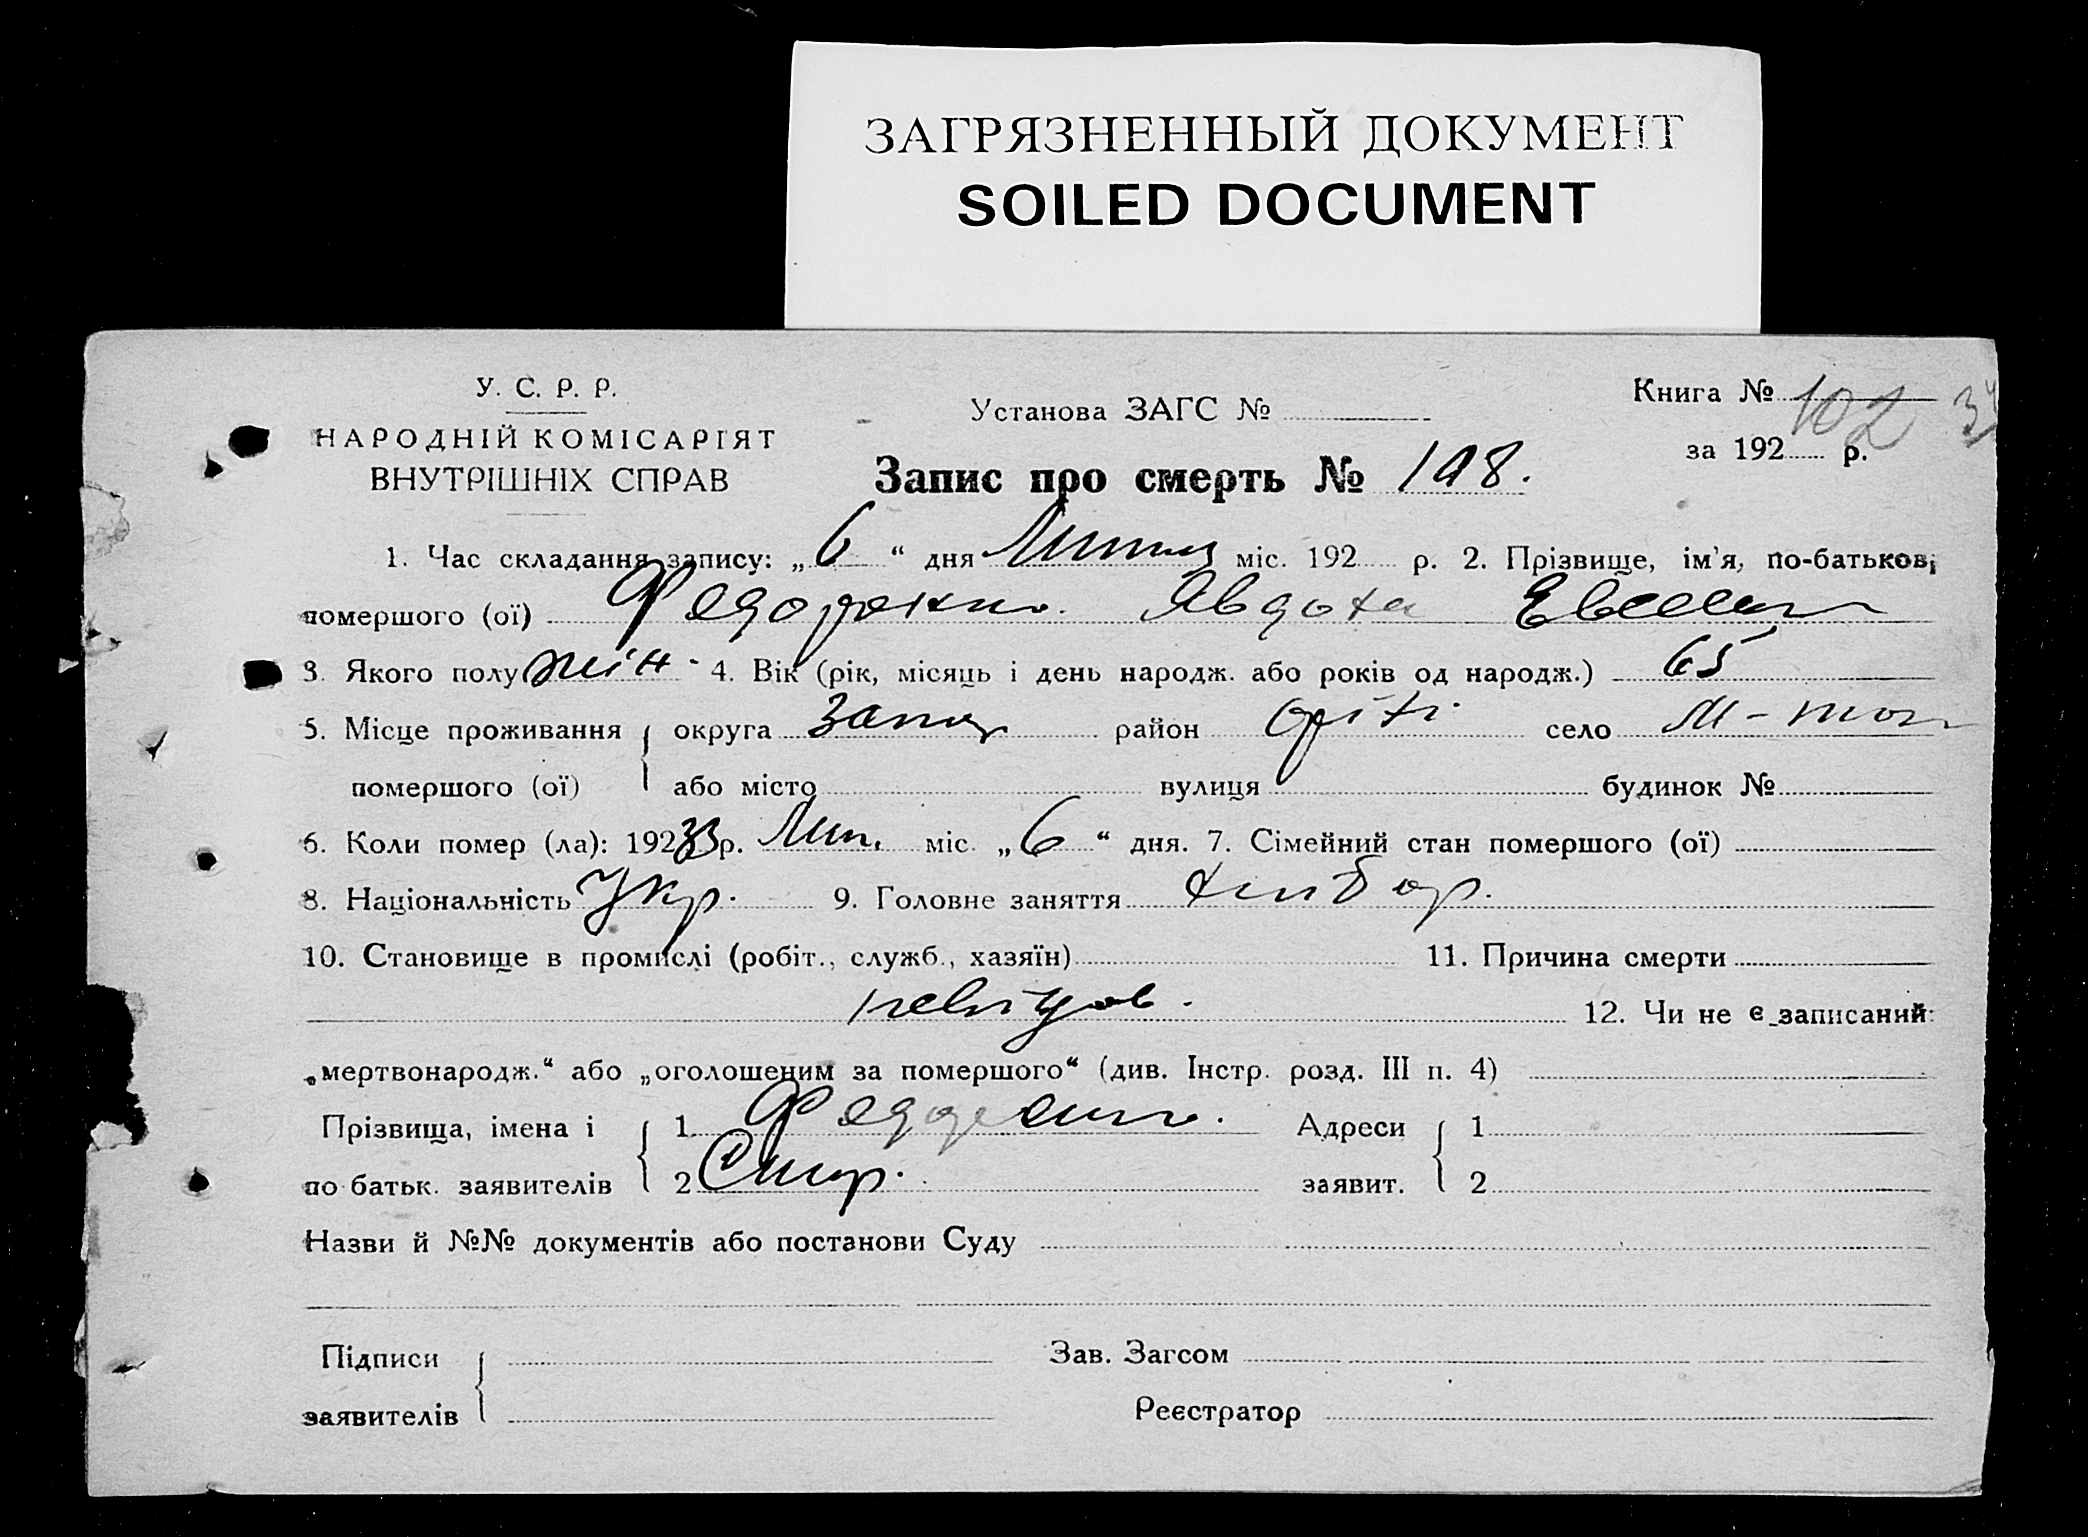 ЗАГРЯЗНЕННЫЙ ДОКУМЕНТ
SOILED DOCUMENT
У. С. Р. Р.
НАРОДНІЙ КОМІСАРІЯТ
ВНУТРІШНІХ СПРАВ
Установа ЗАГС №
Книга № 102
за 192 р.
Запис про смерть № 198.
1. Час складання запису: „6“ дня міс. 192 р. 2. Прізвище, ім'я, по-батькові
помершого (ої) Явдоха
3. Якого полу жін. 4. Вік (рік, місяць і день народж. або років од народж.) 65
5. Місце проживання округа район село
помершого (ої) або місто вулиця будинок №
6. Коли помер (ла): 192 33 р. Лип. міс. „6“ дня. 7. Сімейний стан помершого (ої)
8. Національність Укр. 9. Головне заняття хлібор.
10. Становище в промислі (робіт., служб., хазяїн) 11. Причина смерти
невідом. 12. Чи не є записаний:
„мертвонародж.“ або „оголошеним за помершого“ (див. Інстр. розд. III п. 4)
Прізвища, імена і 1 Адреси 1
по батьк. заявителів 2 заявит. 2
Назви й №№ документів або постанови Суду
Підписи Зав. Загсом
заявителів Реєстратор